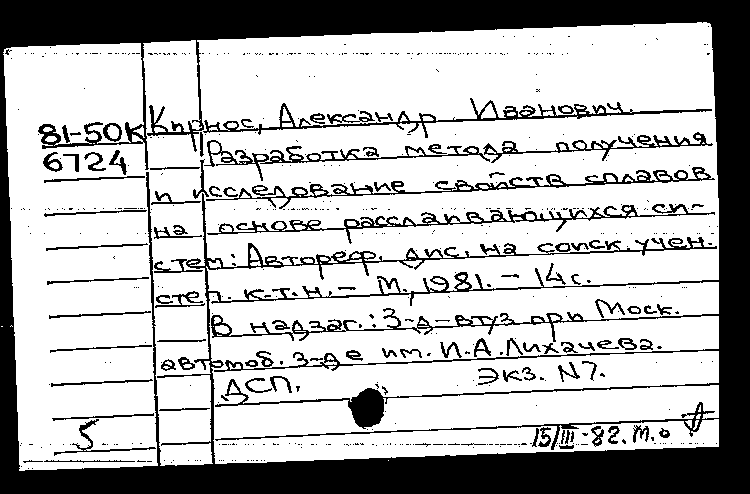 81-50к Кирнос, Александр Иванович.
6724 Разработка метода получения
и исследование свойств сплавов
на основе расслаивающихся си-
стем: Автореф. дис. на соиск. учен.
степ. к.т.н. – М., 1981. – 14 с.
В надзаг.: З-д-втуз при Моск.
автомоб. з-де им. И.А. Лихачева.
ДСП. Экз. N7.
5 15/III-82. м.о